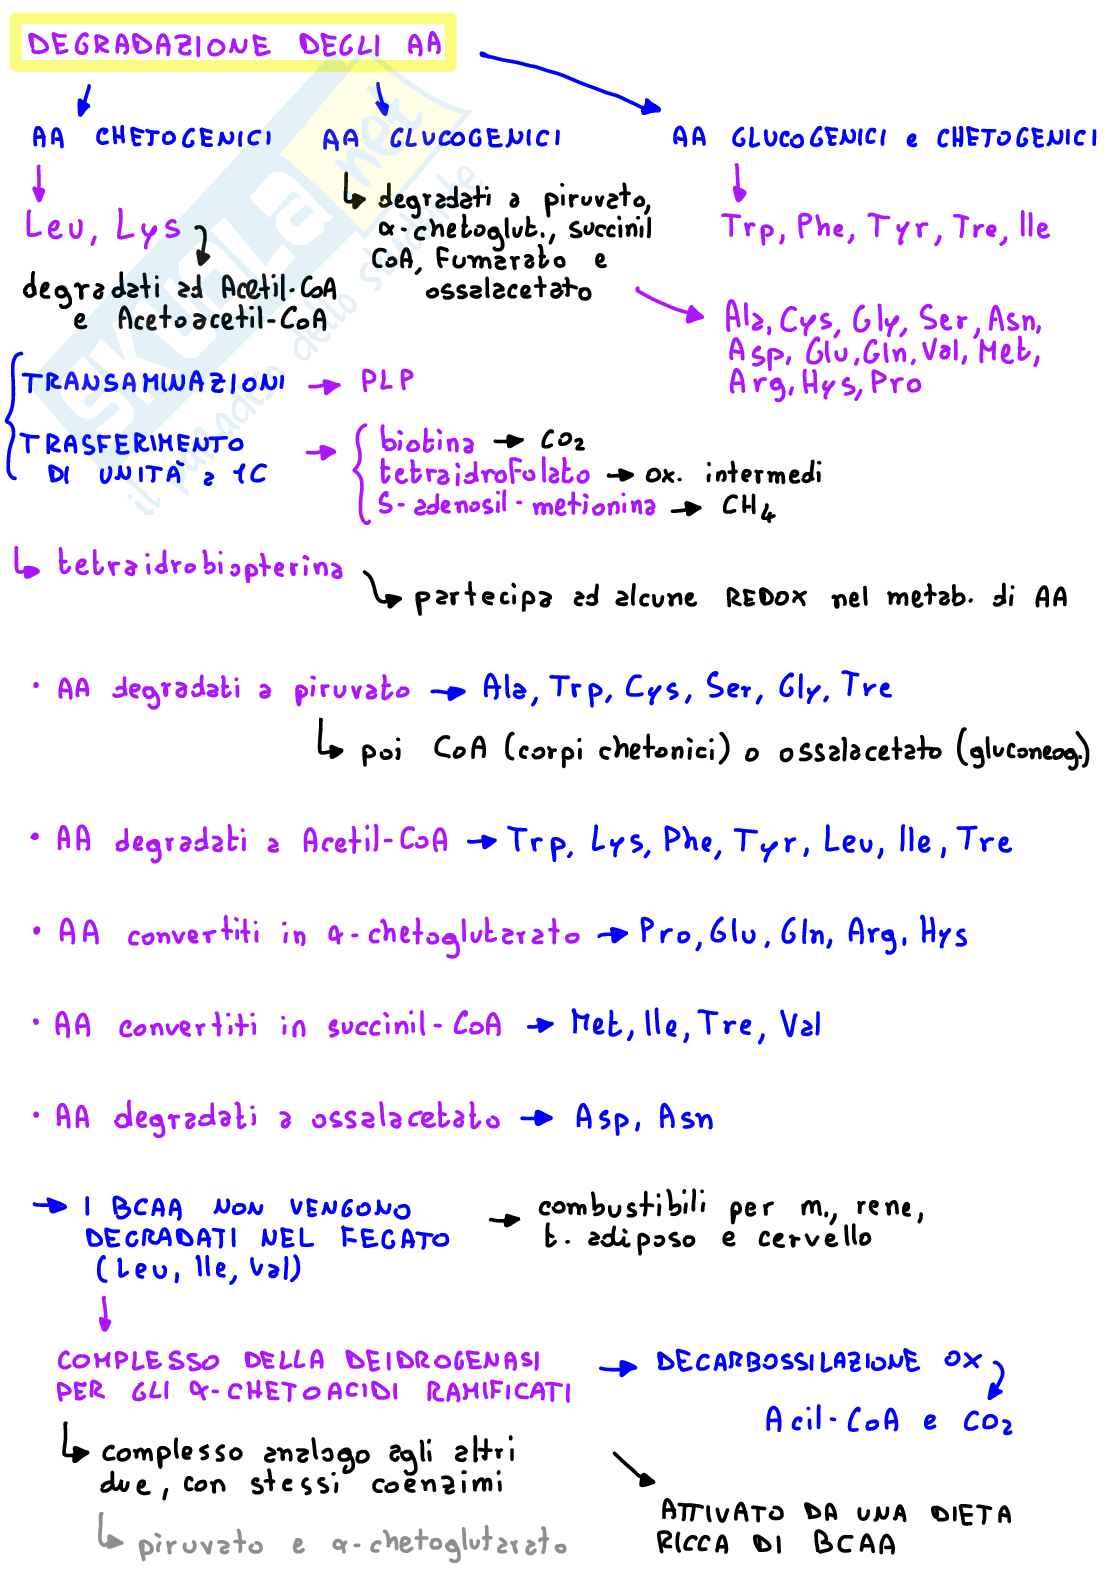 DEGRADAZIONE DEGLI AA
AA CHETOGENICI
AA GLUCOGENICI
AA GLUCOGENICI e CHETOGENICI
Leu, Lys
degradati ad Acetil-CoA
e Acetoacetil-CoA
degradati a piruvato,
α-chetoglut., succinil
CoA, Fumarato e
ossalacetato
Trp, Phe, Tyr, Tre, Ile
Ala, Cys, Gly, Ser, Asn,
Asp, Glu, Gln, Val, Met,
Arg, Hys, Pro
TRANSAMINAZIONI → PLP
TRASFERIMENTO
DI UNITÀ a 1C
biotina → CO2
tetraidrofolato → ox. intermedi
S-adenosil-metionina → CH4
tetraidrobiopterina
partecipa ad alcune REDOX nel metab. di AA
• AA degradati a piruvato → Ala, Trp, Cys, Ser, Gly, Tre
poi CoA (corpi chetonici) o ossalacetato (gluconeog.)
• AA degradati a Acetil-CoA → Trp, Lys, Phe, Tyr, Leu, Ile, Tre
• AA convertiti in α-chetoglutarato → Pro, Glu, Gln, Arg, Hys
• AA convertiti in succinil-CoA → Met, Ile, Tre, Val
• AA degradati a ossalacetato → Asp, Asn
→ I BCAA NON VENGONO
DEGRADATI NEL FEGATO
(Leu, Ile, Val)
→ combustibili per m., rene,
t. adiposo e cervello
COMPLESSO DELLA DEIDROGENASI
PER GLI α-CHETOACIDI RAMIFICATI
→ DECARBOSSILAZIONE OX
Acil-CoA e CO2
complesso analogo agli altri
due, con stessi coenzimi
piruvato e α-chetoglutarato
ATTIVATO DA UNA DIETA
RICCA DI BCAA
SKUOLA.net
il paradiso dello studente